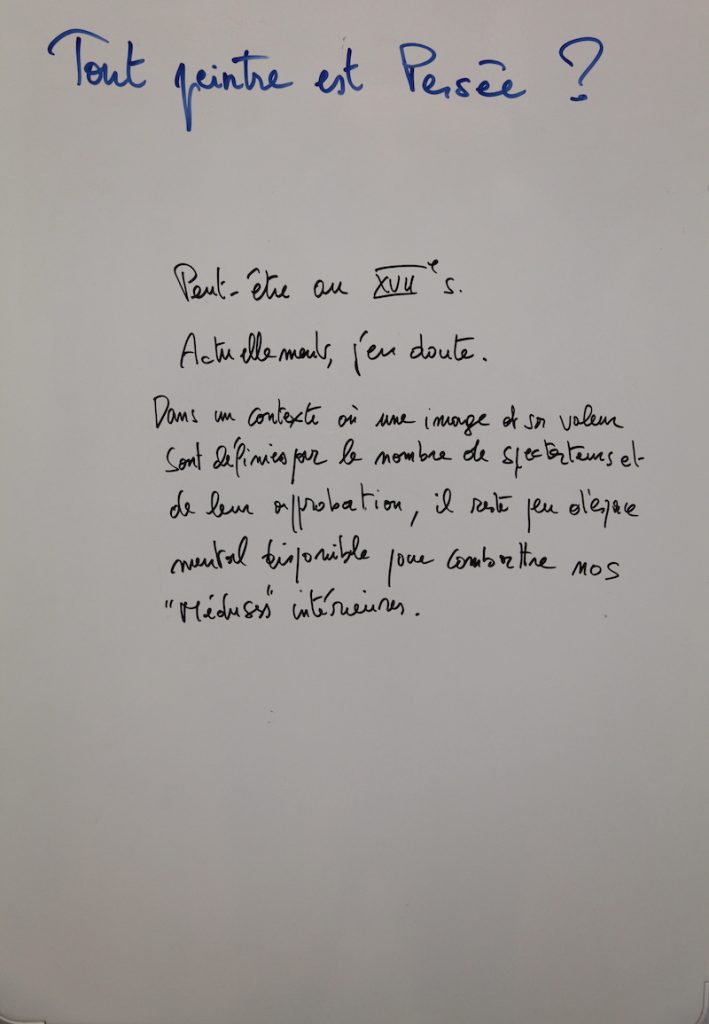 Tout peintre est Persée ?
Peut-être au XVIIe s.
Actuellement, j'en doute.
Dans un contexte où une image et sa valeur
sont définies par le nombre de spectateurs et
de leur approbation, il reste peu d'espace
mental disponible pour combattre nos
"Méduses" intérieures.